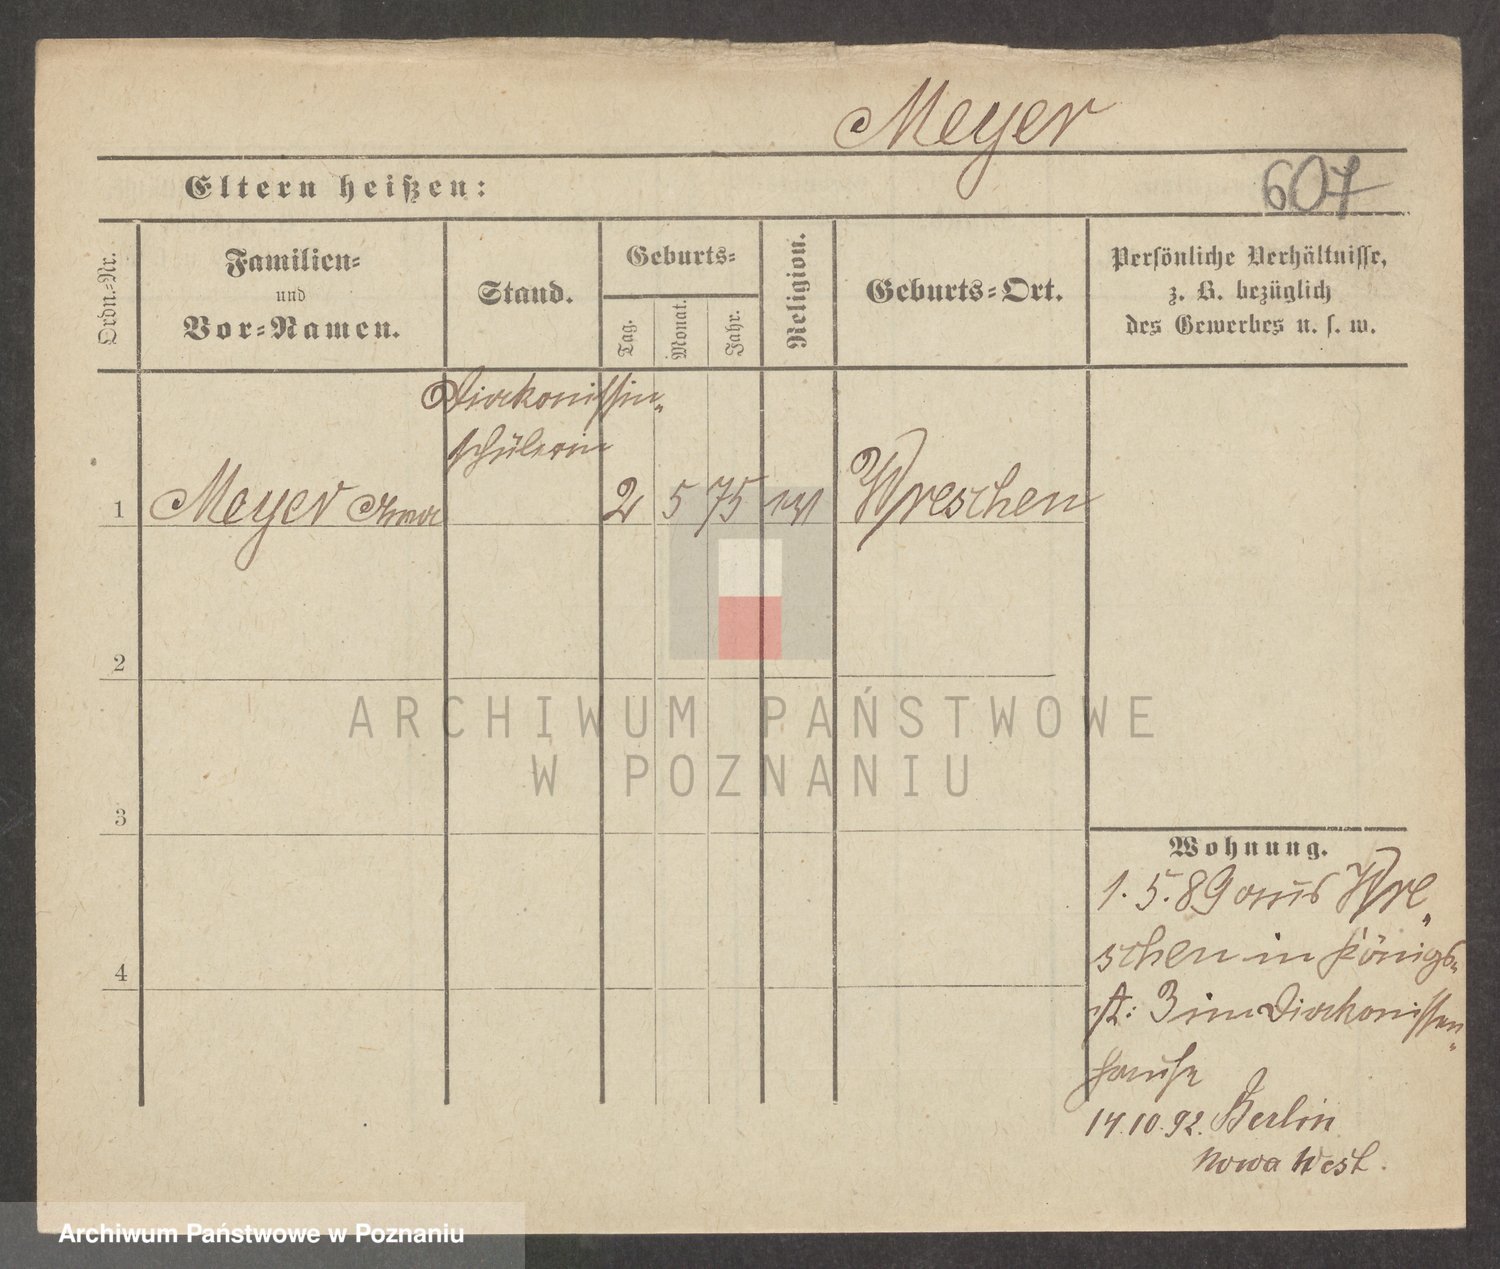 Meyer
Eltern heißen:
607
Ordn.-Nr.
Familien-
und
Vor-Namen.
Stand.
Geburts-
Tag.
Monat.
Jahr.
Religion.
Geburts-Ort.
Persönliche Verhältnisse,
z. B. bezüglich
des Gewerbes u. s. w.
Diakonissin-
schülerin
1 Meyer 2 5 75 Wreschen
2
3
4
ARCHIWUM PAŃSTWOWE
W POZNANIU
Wohnung.
1. 5. 89 aus Wre-
schen in Königs-
st: 3 im Diakonissen-
hause
14.10.92. Berlin
Nowa West.
Archiwum Państwowe w Poznaniu